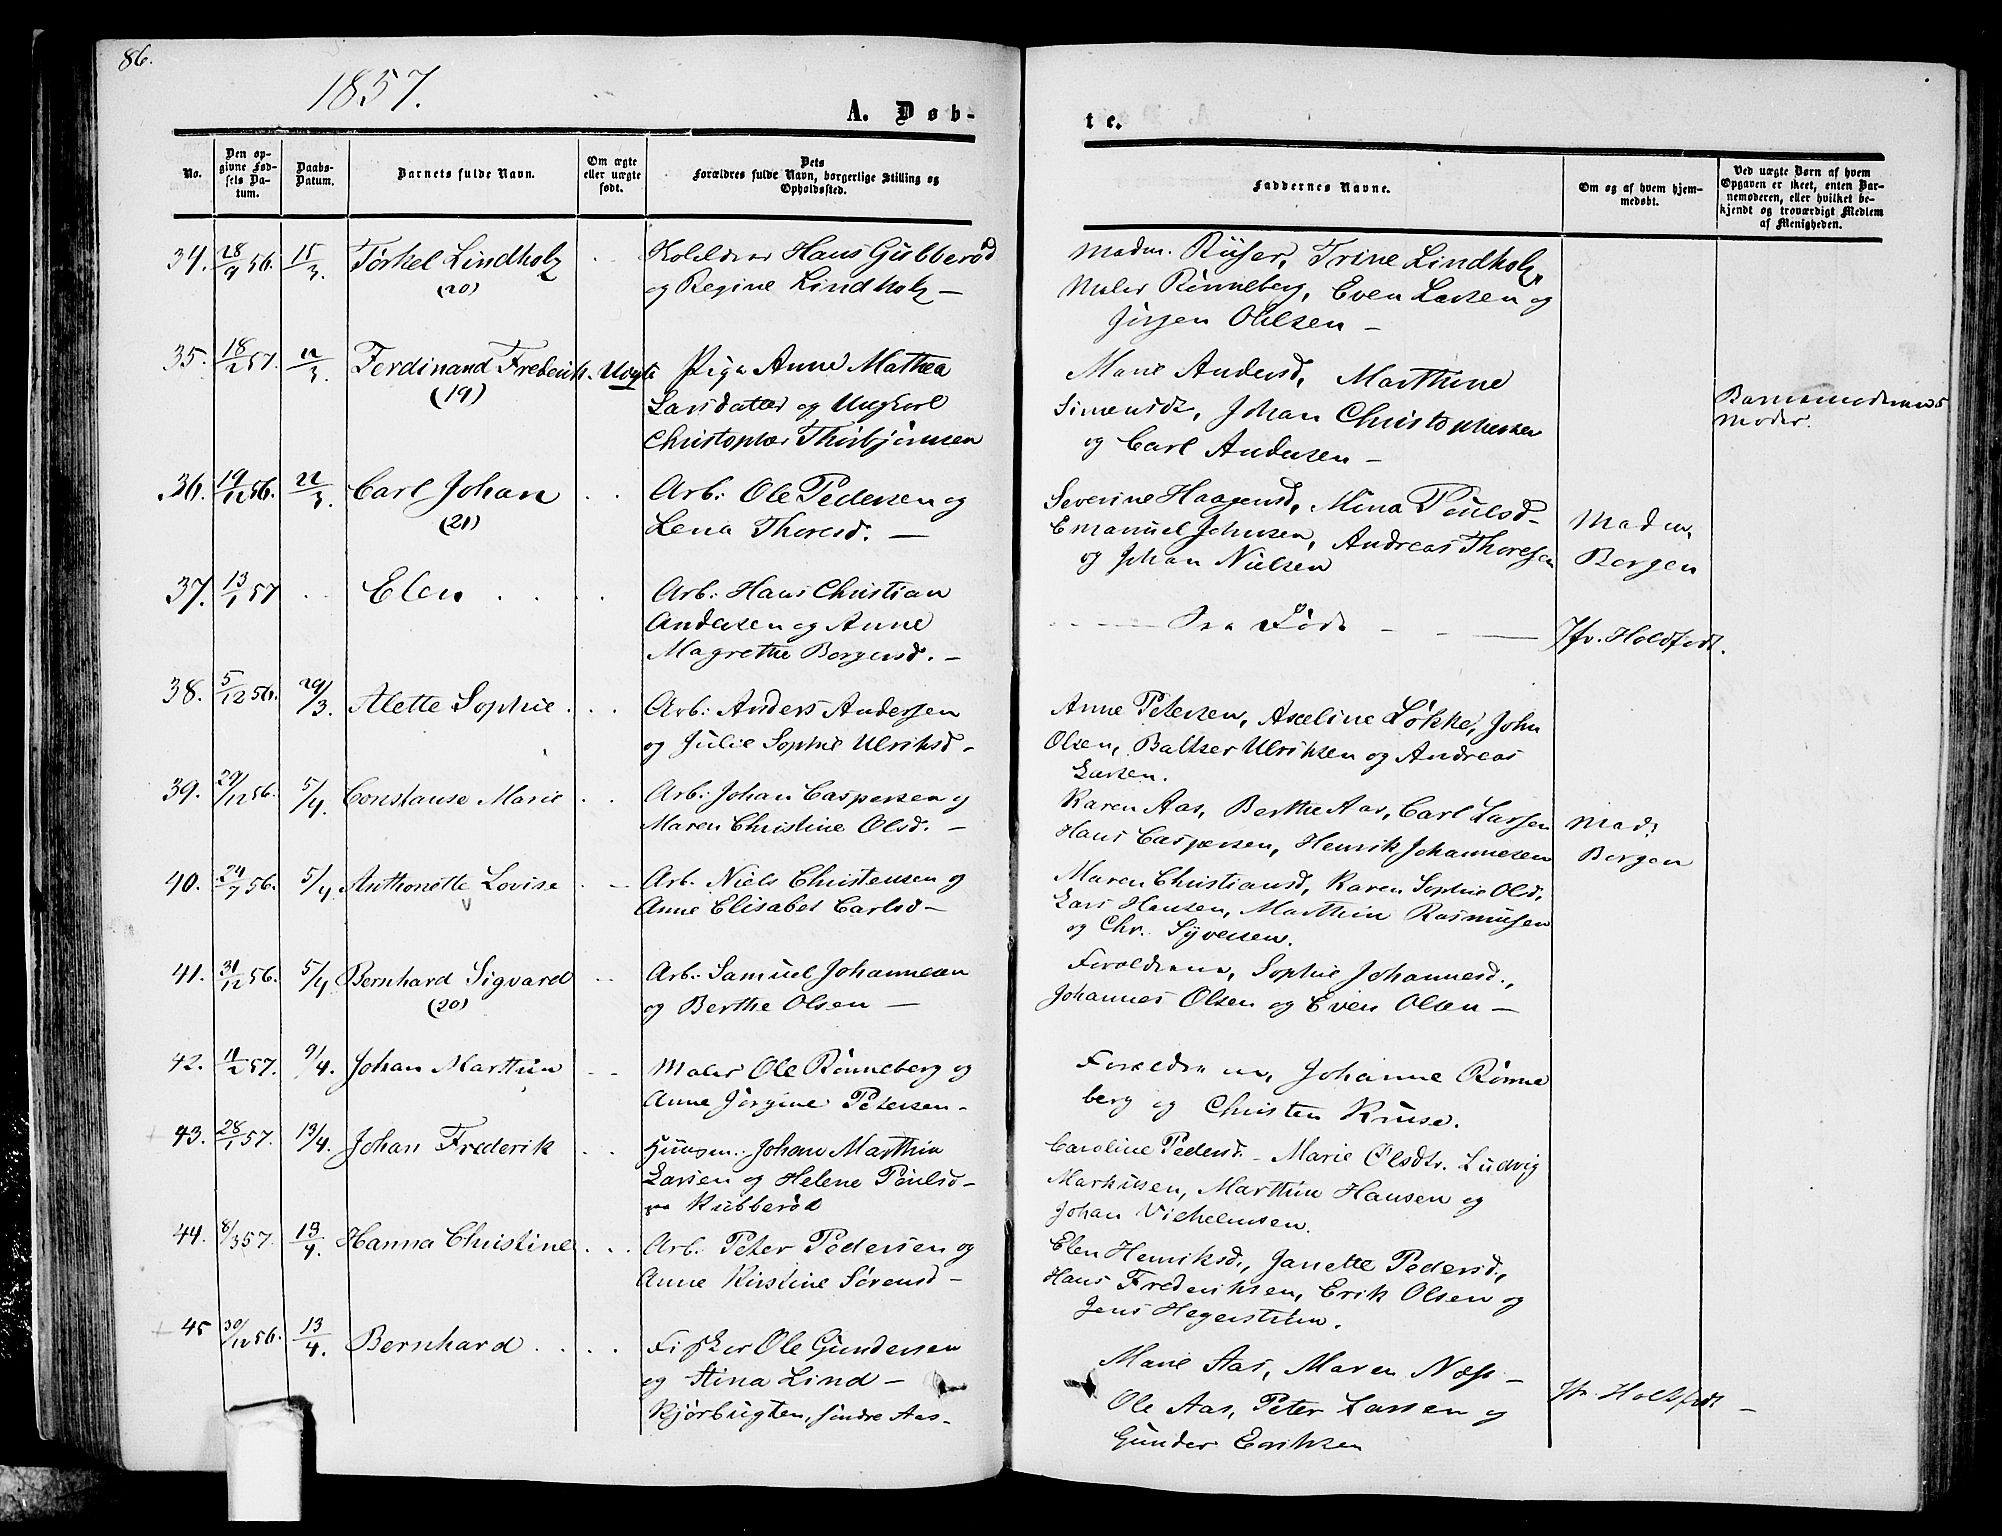 86.
1857.
A. Døb-
te.
No.
Den op-
givne Fød-
sels Da-
tum.
Daabs-
Datum.
Barnets fulde Navn.
Om ægte
eller uægte
født.
Dets
Forældres fulde Navn, borgerlige Stilling og
Opholdssted.
Faddernes Navne.
Om og af hvem hjem-
medøbt.
Ved uægte Børn af hvem
Opgaven er skeet, enten Bar-
nemoderen, eller hvilket be-
kjendt og troværdigt Medlem
af Menigheden.
34. 28/9 56. 15/3. Tørkel Lindholz
(20)
Hans Gubberød
og Regine Lindholz –
Madm. Rüser, Trine Lindholz,
Maler Rønneberg, Even Larsen og
Jørgen Ohlsen –
35. 18/2 57. 22/3. Ferdinand Frederik. Uægte
(19)
Pige Anne Mathea
Larsdatter og Ungkarl
Christopher Thorbjørnsen
Marie Andersd, Marthine
Simensdr, Johan Christophersen
og Carl Andersen –
Barnemoderens
Moder.
36. 19/12 56. 22/3. Carl Johan . .
(21)
Arb: Ole Pedersen og
Lena Thoresd. –
Severine Haagensd, Mina Poulsd –
Emanuel Johnsen, Andreas Thoresen
og Johan Nielsen
Madm.
Borgen
37. 13/1 57 . . Elen . . . .
Arb: Hans Christian
Andersen og Anne
Magrethe Borgersd. –
Jfr. Holdfodt.
38. 5/12 56. 29/3. Alette Sophie . . .
Arb: Anders Andersen
og Julie Sophie Ulriksd –
Anne Petersen, Axeline Løkke, John
Olsen, Baltser Ulriksen og Andreas
Larsen.
39. 29/12 56. 5/4 Constanse Marie . .
Arb: Johan Caspersen og
Maren Christine Olsd. –
Karen Aas, Berthe Aas, Carl Larsen
Hans Caspersen, Henrik Johannesen
Mad.
Borgen
40. 24/7 56. 5/4 Anthonette Lovise . –
Arb. Niels Christensen og
Anne Elisabet Carlsd –
Maren Christiansd, Karen Sophie Olsd,
Lars Hansen, Marthin Rasmusen
og Chr. Syversen.
41. 31/12 56. 5/4 Bernhard Sigvard . .
(20)
Arb: Samuel Johannesen
og Berthe Olsen –
Forældrene, Sophie Johannesd.,
Johannes Olsen og Even Olsen –
42. 11/2 57. 9/4. Johan Marthin . .
Maler Ole Rønneberg og
Anne Jørgine Petersen –
Forældrene, Johanne Rønne
berg og Christen Kruse.
43. 28/1 57. 13/4. Johan Frederik . .
Huusm: Johan Marthin
Larsen og Helene Poulsd –
Kubberød
Caroline Pedersd. – Marie Olsdtr. Ludvig
Markusen, Marthin Hansen og
Johan Vilhelmsen.
44. 8/3 57. 13/4 Hanna Christine . .
Arb: Peter Pedersen og
Anne Kirstine Sørensd –
Elen Henriksd., Janette Pedersd.,
Hans Frederiksen, Erik Olsen og
Jens Hegerstrøm.
45 30/12 56. 13/4. Bernhard . . . .
Fisker Ole Gundersen
og Stina Lind –
Kjørbugten, søndre Aas –
Marie Aas, Maren Næss –
Ole Aas, Peter Larsen og
Gunder Eriksen
Jfr Holdfodt –